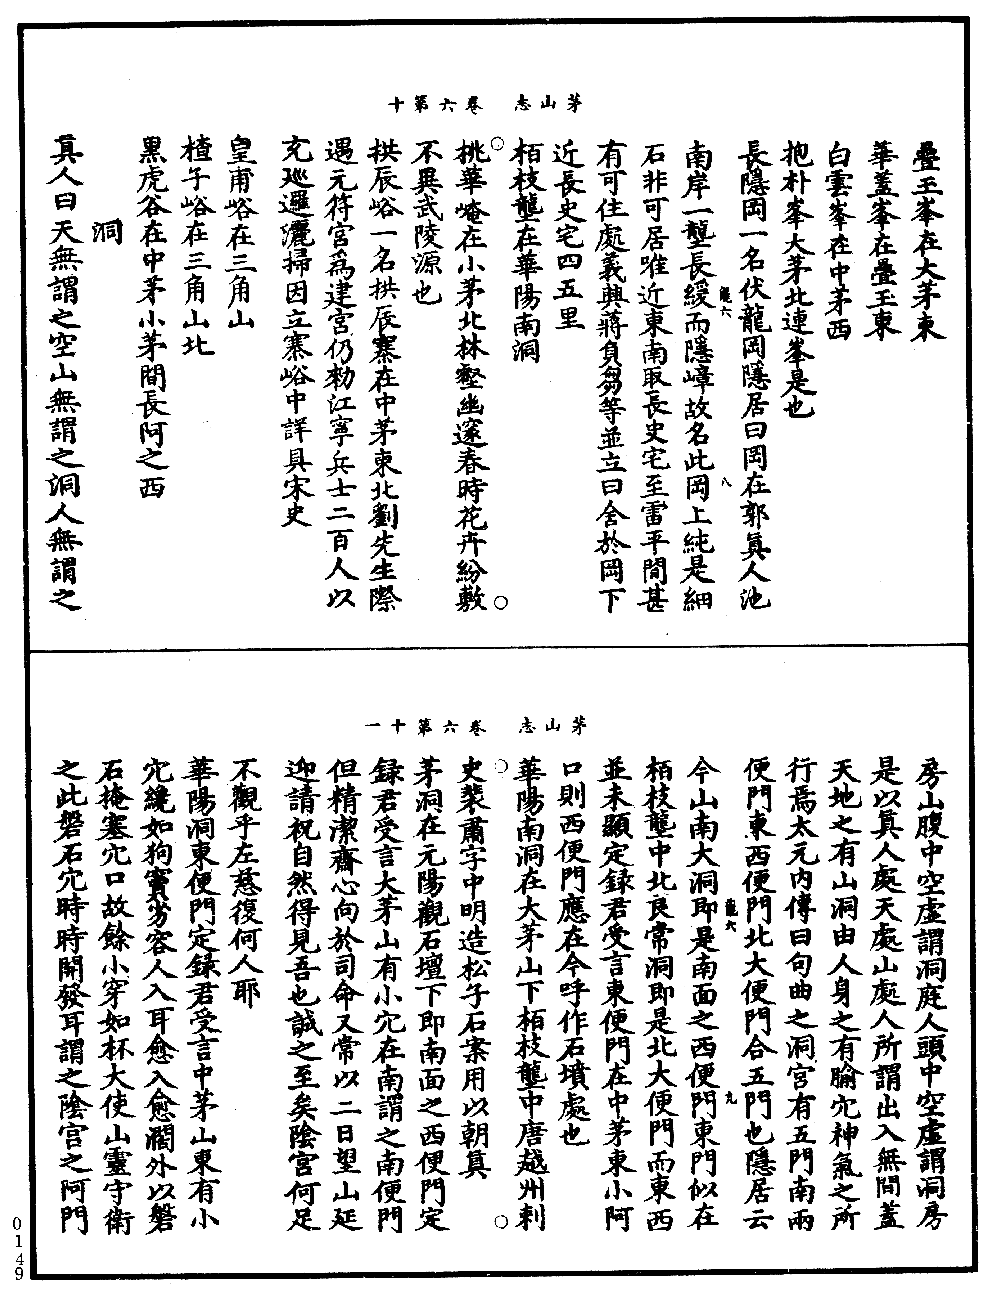 茅山志　卷六第十
疊玉峯在大茅東
華蓋峯在疊玉東
白雲峯在中茅西
抱朴峯大茅北連峯是也
長隱岡一名伏龍岡隱居曰岡在郭眞人池
龍六　八
南岸一壟長緩而隱嶂故名此岡上純是細
石非可居唯近東南取長史宅至雷平間甚
有可住處義興蔣負芻等並立曰舍於岡下
近長史宅四五里
栢枝壟在華陽南洞
桃華崦在小茅北林壑幽邃春時花卉紛敷
不異武陵源也
拱辰峪一名拱辰寨在中茅東北劉先生際
遇元符宮爲建宮仍勑江寧兵士二百人以
充廵邏灑掃因立寨峪中詳具宋史
皇甫峪在三角山
楂子峪在三角山北
黑虎谷在中茅小茅間長阿之西
洞
眞人曰天無謂之空山無謂之洞人無謂之
茅山志　卷六第十一
房山腹中空虛謂洞庭人頭中空虛謂洞房
是以眞人處天處山處人所謂出入無間蓋
天地之有山洞由人身之有腧穴神氣之所
行焉太元內傳曰句曲之洞宮有五門南兩
便門東西便門北大便門合五門也隱居云
龍六　九
今山南大洞即是南面之西便門東門似在
栢枝壟中北良常洞即是北大便門而東西
並未顯定錄君受言東便門在中茅東小阿
口則西便門應在今呼作石墳處也
華陽南洞在大茅山下栢枝壟中唐越州刺
史裴肅字中明造松子石案用以朝眞
茅洞在元陽觀石壇下即南面之西便門定
錄君受言大茅山有小穴在南謂之南便門
但精潔齋心向於司命又常以二日望山延
迎請祝自然得見吾也誠之至矣陰宮何足
不觀乎左慈復何人耶
華陽洞東便門定錄君受言中茅山東有小
穴纔如狗竇劣容人入耳愈入愈濶外以磐
石掩塞穴口故餘小穿如杯大使山靈守衛
之此磐石穴時時開發耳謂之陰宮之阿門
0149